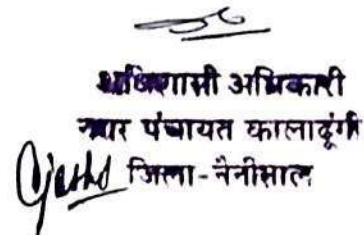 अधिशासी अधिकारी
नगर पंचायत कालाढूंगी
जिला-नैनीताल